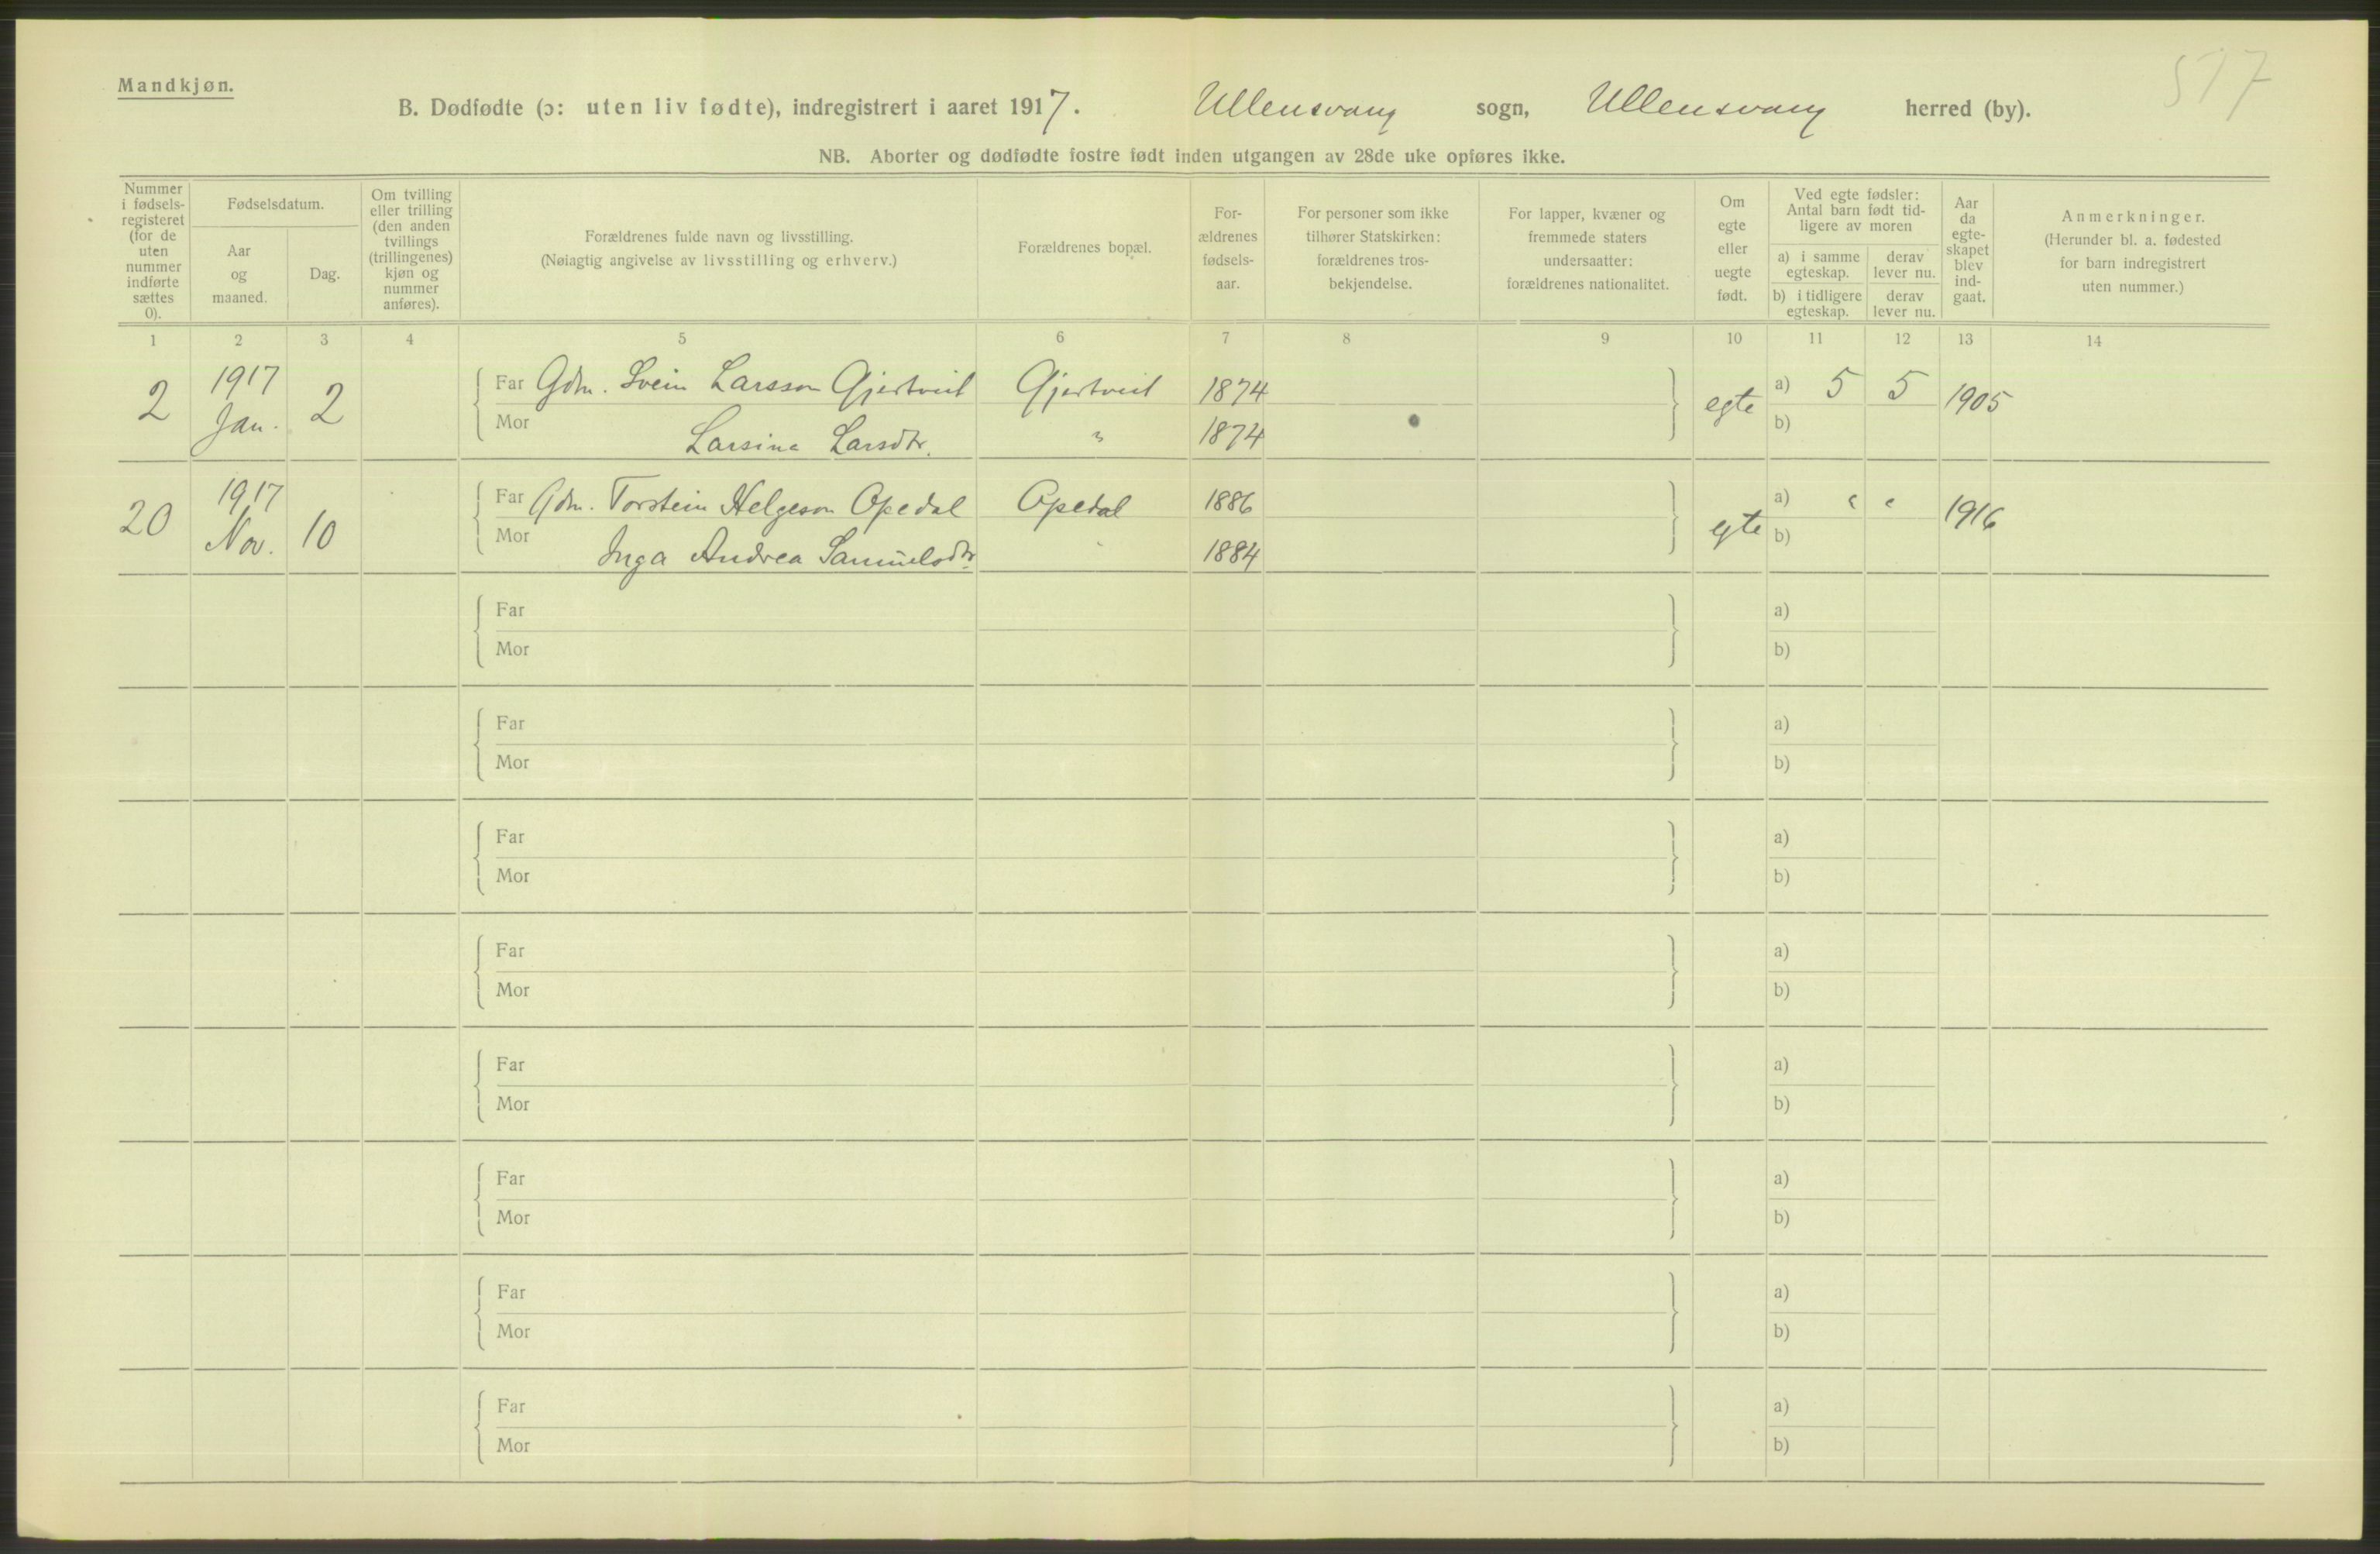 517
Mandkjøn.
B. Dødfødte (ɔ: uten liv fødte), indregistrert i aaret 1917. Ullensvang sogn, Ullensvang herred (by).
NB. Aborter og dødfødte fostre født inden utgangen av 28de uke opføres ikke.
Nummer
i fødsels-
registeret
(for de
uten
nummer
indførte
sættes
0).
Fødselsdatum.
Aar
og
maaned.
Dag.
Om tvilling
eller trilling
(den anden
tvillings
(trillingenes)
kjøn og
nummer
anføres).
Forældrenes fulde navn og livsstilling.
(Nøiagtig angivelse av livsstilling og erhverv.)
Forældrenes bopæl.
For-
ældrenes
fødsels-
aar.
For personer som ikke
tilhører Statskirken:
forældrenes tros-
bekjendelse.
For lapper, kvæner og
fremmede staters
undersaatter:
forældrenes nationalitet.
Om
egte
eller
uegte
født.
Ved egte fødsler:
Antal barn født tid-
ligere av moren
a) i samme
egteskap.
derav
lever nu.
b) i tidligere
egteskap.
derav
lever nu.
Aar
da
egte-
skapet
blev
ind-
gaat.
Anmerkninger.
(Herunder bl. a. fødested
for barn indregistrert
uten nummer.)
1 2 3 4 5 6 7 8 9 10 11 12 13 14
2 1917 Jan. 2 Far Gdm. Svein Larsson Gjertveit Gjertveit 1874 egte a) 5 5 1905
Mor Larsina Larsdtr. " 1874 b)
20 1917 Nov. 10 Far Gdm. Torstein Helgeson Opedal Opedal 1886 egte a) " " 1916
Mor Inga Andrea Samuelsdtr. " 1884 b)
Far a)
Mor b)
Far a)
Mor b)
Far a)
Mor b)
Far a)
Mor b)
Far a)
Mor b)
Far a)
Mor b)
Far a)
Mor b)
Far a)
Mor b)